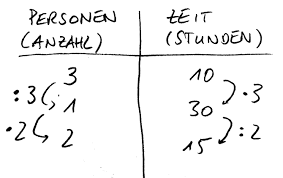 PERSONEN ZEIT
(ANZAHL) (STUNDEN)
3 10
:3 ·3
1 30
·2 :2
2 15